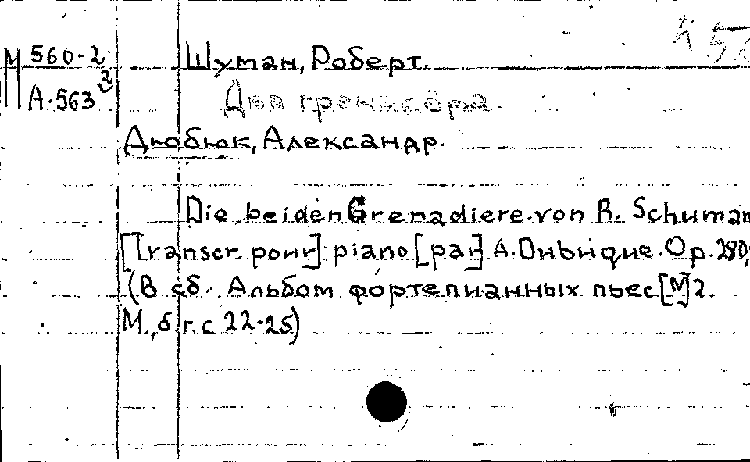 М 560-2
А-563
Шуман, Роберт.
Два гренадера.
Дюбюк, Александр.
Die beiden Grenadiere von R. Schuman
[Transcr. pour] piano [par] A. Dubuque. Op. 280,
(В сб. Альбом фортепианных пьес [М] 2.
М., б г. с 22-25)